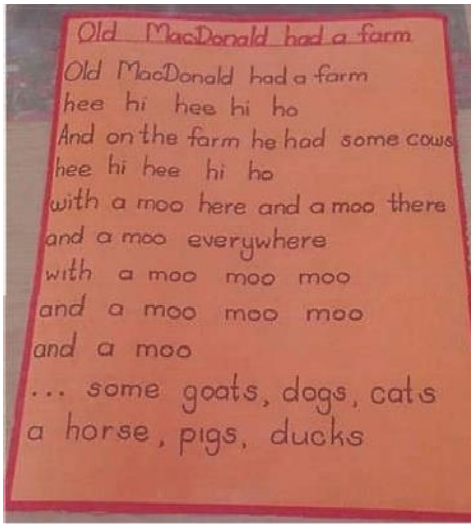 Old MacDonald had a farm
Old MacDonald had a farm
hee hi hee hi ho
And on the farm he had some cows
hee hi hee hi ho
with a moo here and a moo there
and a moo everywhere
with a moo moo moo
and a moo moo moo
and a moo
... some goats, dogs, cats
a horse, pigs, ducks